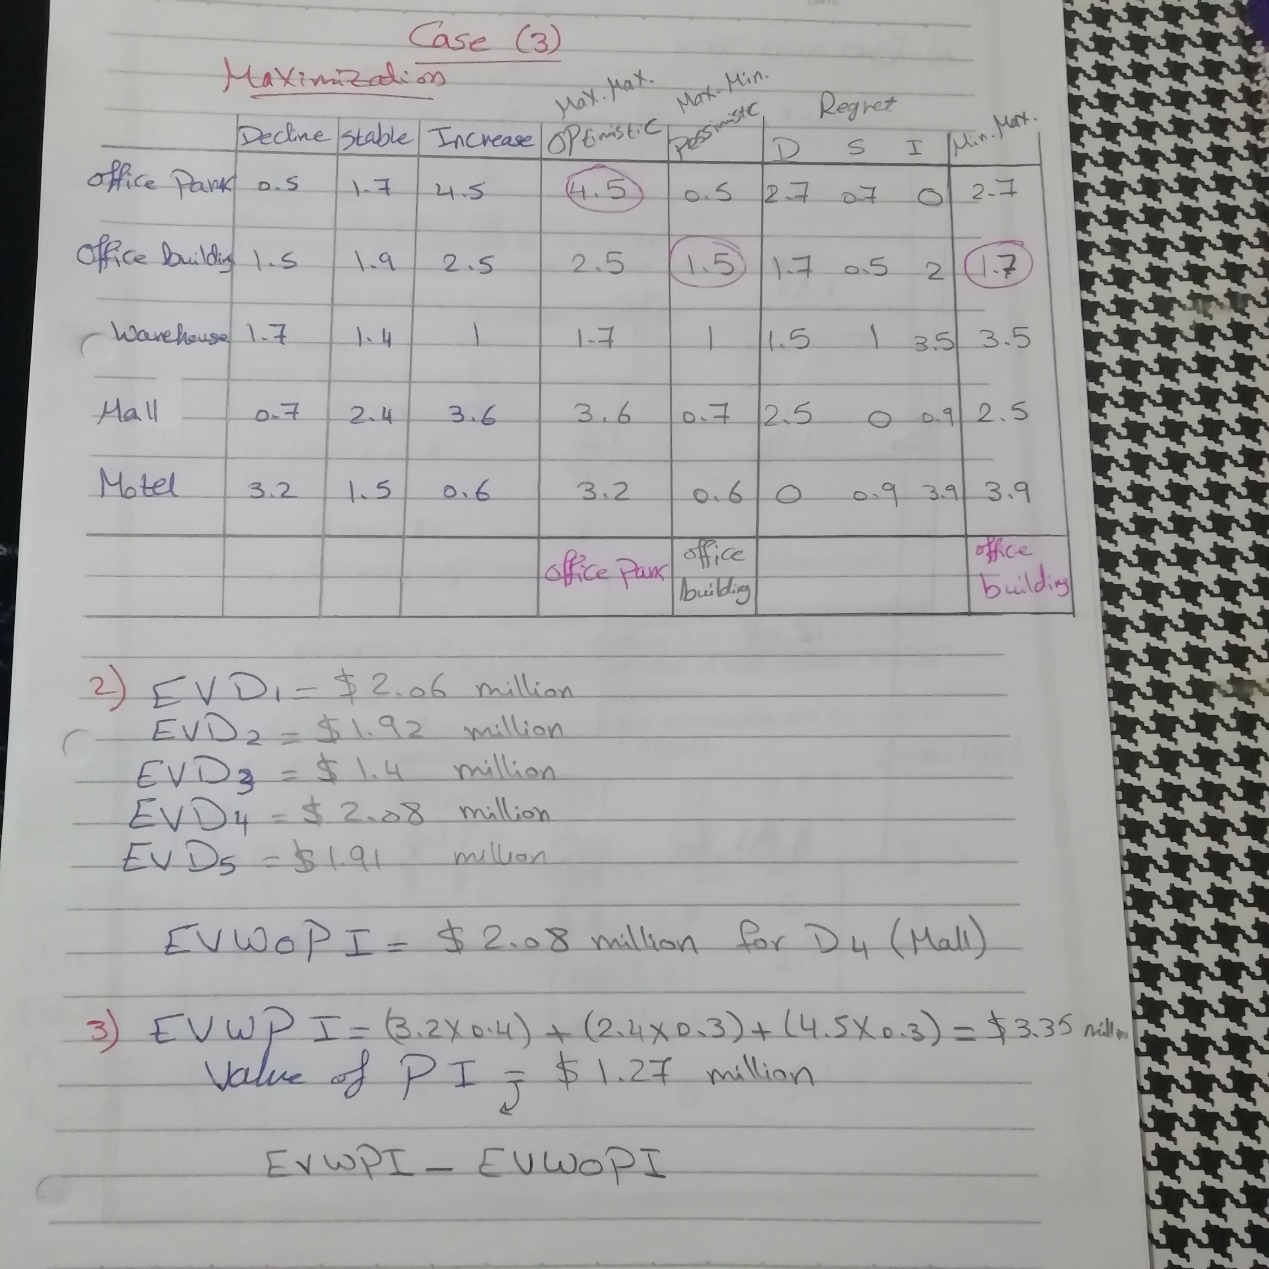 Case (3)
Maximization
Max.Max. Max-Min. Regret
Decline Stable Increase Optimistic Pessimistic D S I Min.Max.
Office Park 0.5 1.7 4.5 4.5 0.5 2.7 0.7 0 2.7
Office building 1.5 1.9 2.5 2.5 1.5 1.7 0.5 2 1.7
Warehouse 1.7 1.4 1 1.7 1 1.5 1 3.5 3.5
Mall 0.7 2.4 3.6 3.6 0.7 2.5 0 0.9 2.5
Motel 3.2 1.5 0.6 3.2 0.6 0 0.9 3.9 3.9
office Park office building office building
2) EVD1 = $ 2.06 million
EVD2 = $1.92 million
EVD3 = $ 1.4 million
EVD4 = $ 2.08 million
EVD5 = $1.91 million
EVWOPI = $ 2.08 million for D4 (Mall)
3) EVWPI = (3.2x0.4) + (2.4x0.3) + (4.5x0.3) = $3.35 million
Value of PI = $ 1.27 million
EVWPI - EVWOPI